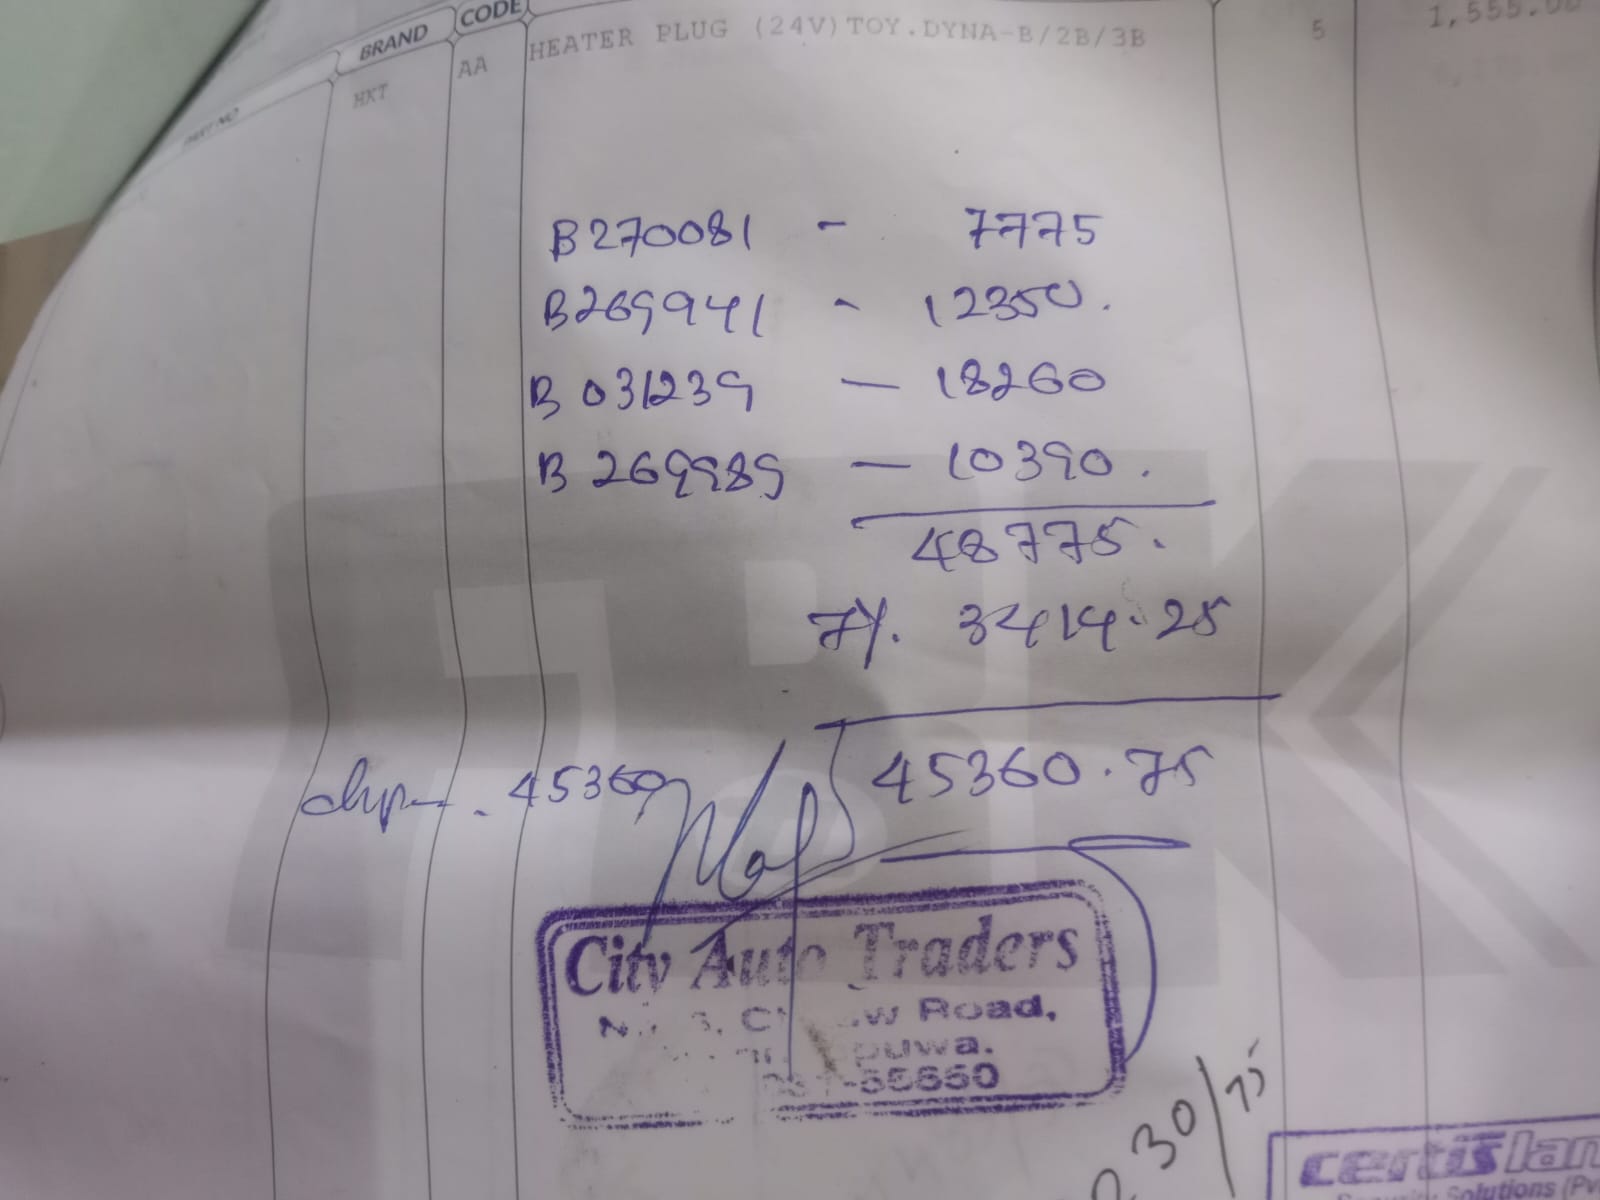 PART NO BRAND CODE
HKT AA HEATER PLUG (24V) TOY.DYNA-B/2B/3B 5 1,555.00
B270081 - 7775
B269941 - 12350.
B 031239 - 18260
B 269989 - 10390.
48775.
7%. 3414.25
45360.75
45360
City Auto Traders
Road,
30/75
certis lan
Solutions (Pv